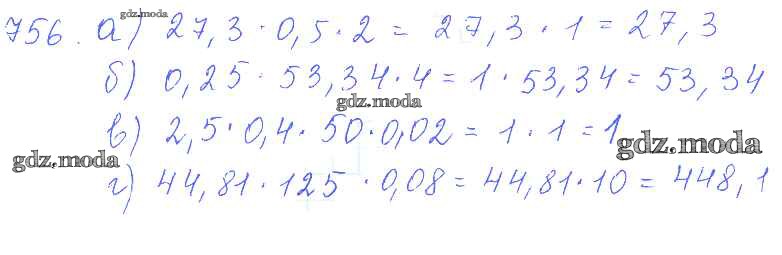 756. а) 27,3 · 0,5 · 2 = 27,3 · 1 = 27,3
б) 0,25 · 53,34 · 4 = 1 · 53,34 = 53,34
в) 2,5 · 0,4 · 50 · 0,02 = 1 · 1 = 1
г) 44,81 · 125 · 0,08 = 44,81 · 10 = 448,1
gdz.moda
gdz.moda
gdz.moda
gdz.moda